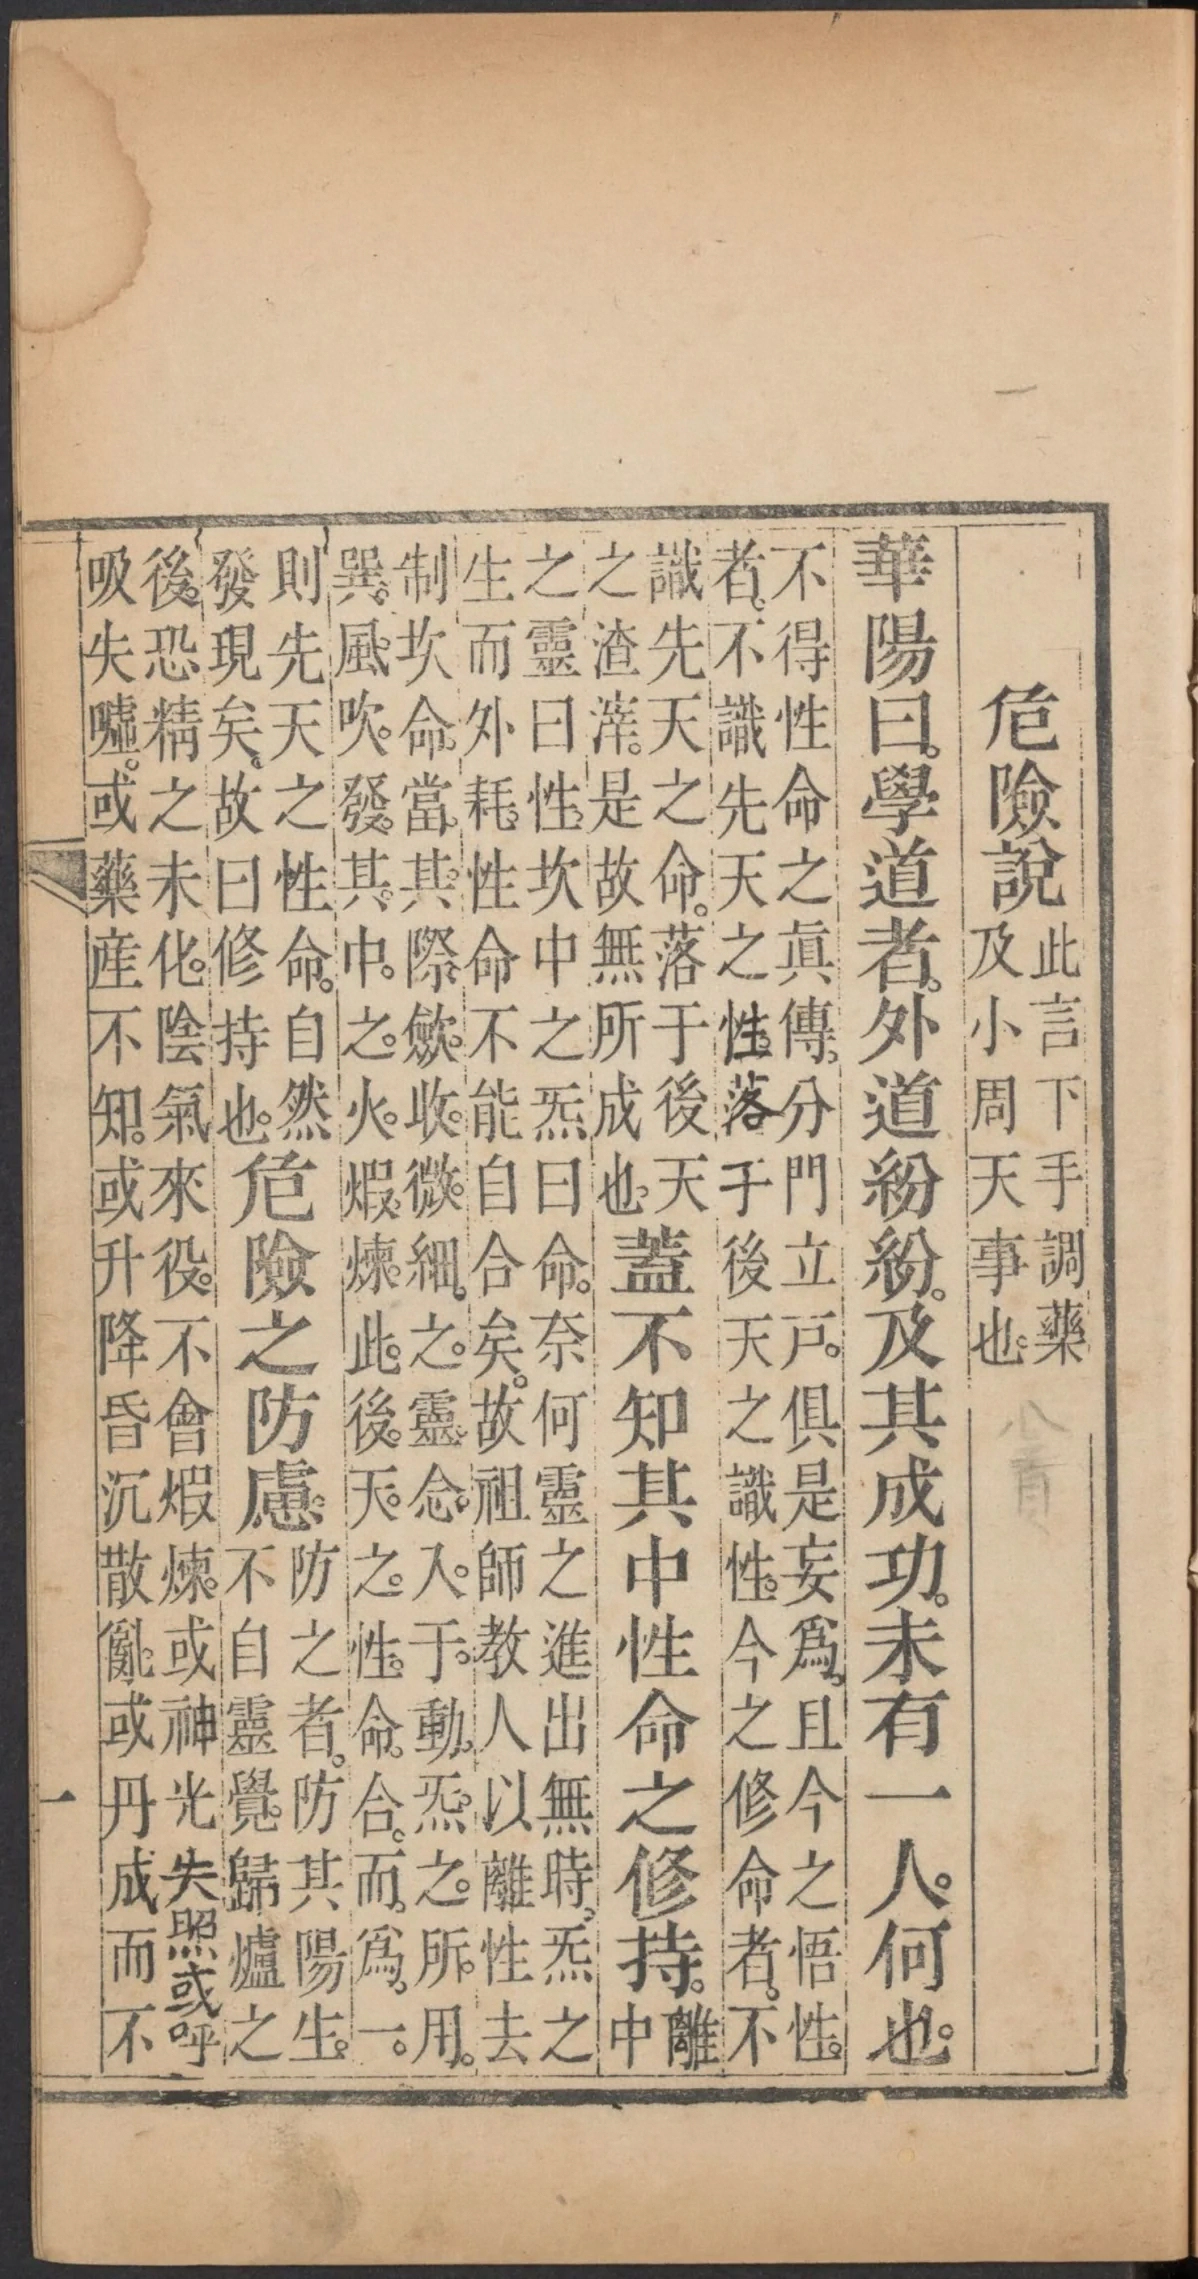 危險說
此言下手調藥
及小周天事也。
華陽曰。學道者。外道紛紛。及其成功。未有一人。何也。
不得性命之眞傳。分門立戸。俱是妄爲。且今之悟性。
者。不識先天之性。落于後天之識性。今之修命者。不
識先天之命。落于後天
之渣滓。是故無所成也。
蓋不知其中性命之修持。
離
中
之靈曰性。坎中之炁曰命。奈何靈之進出無時。炁之
生而外耗。性命不能自合矣。故祖師教人以離性去
制坎命。當。其。際。歛。收。微。細。之。靈。念。入。于。動。炁。之。所。用。
巽。風。吹。發。其。中。之。火。煆。煉。此。後。天。之。性。命。合。而。爲。一。
則先天之性命。自然
發現矣。故曰修持也。
危險之防慮。
防之者。防其陽生。
不自靈覺。歸爐之
後。恐精之未化。陰氣來役。不會煆煉。或神光失照或呼
吸失噓。或藥産不知。或升降昏沉散亂。或丹成而不
一